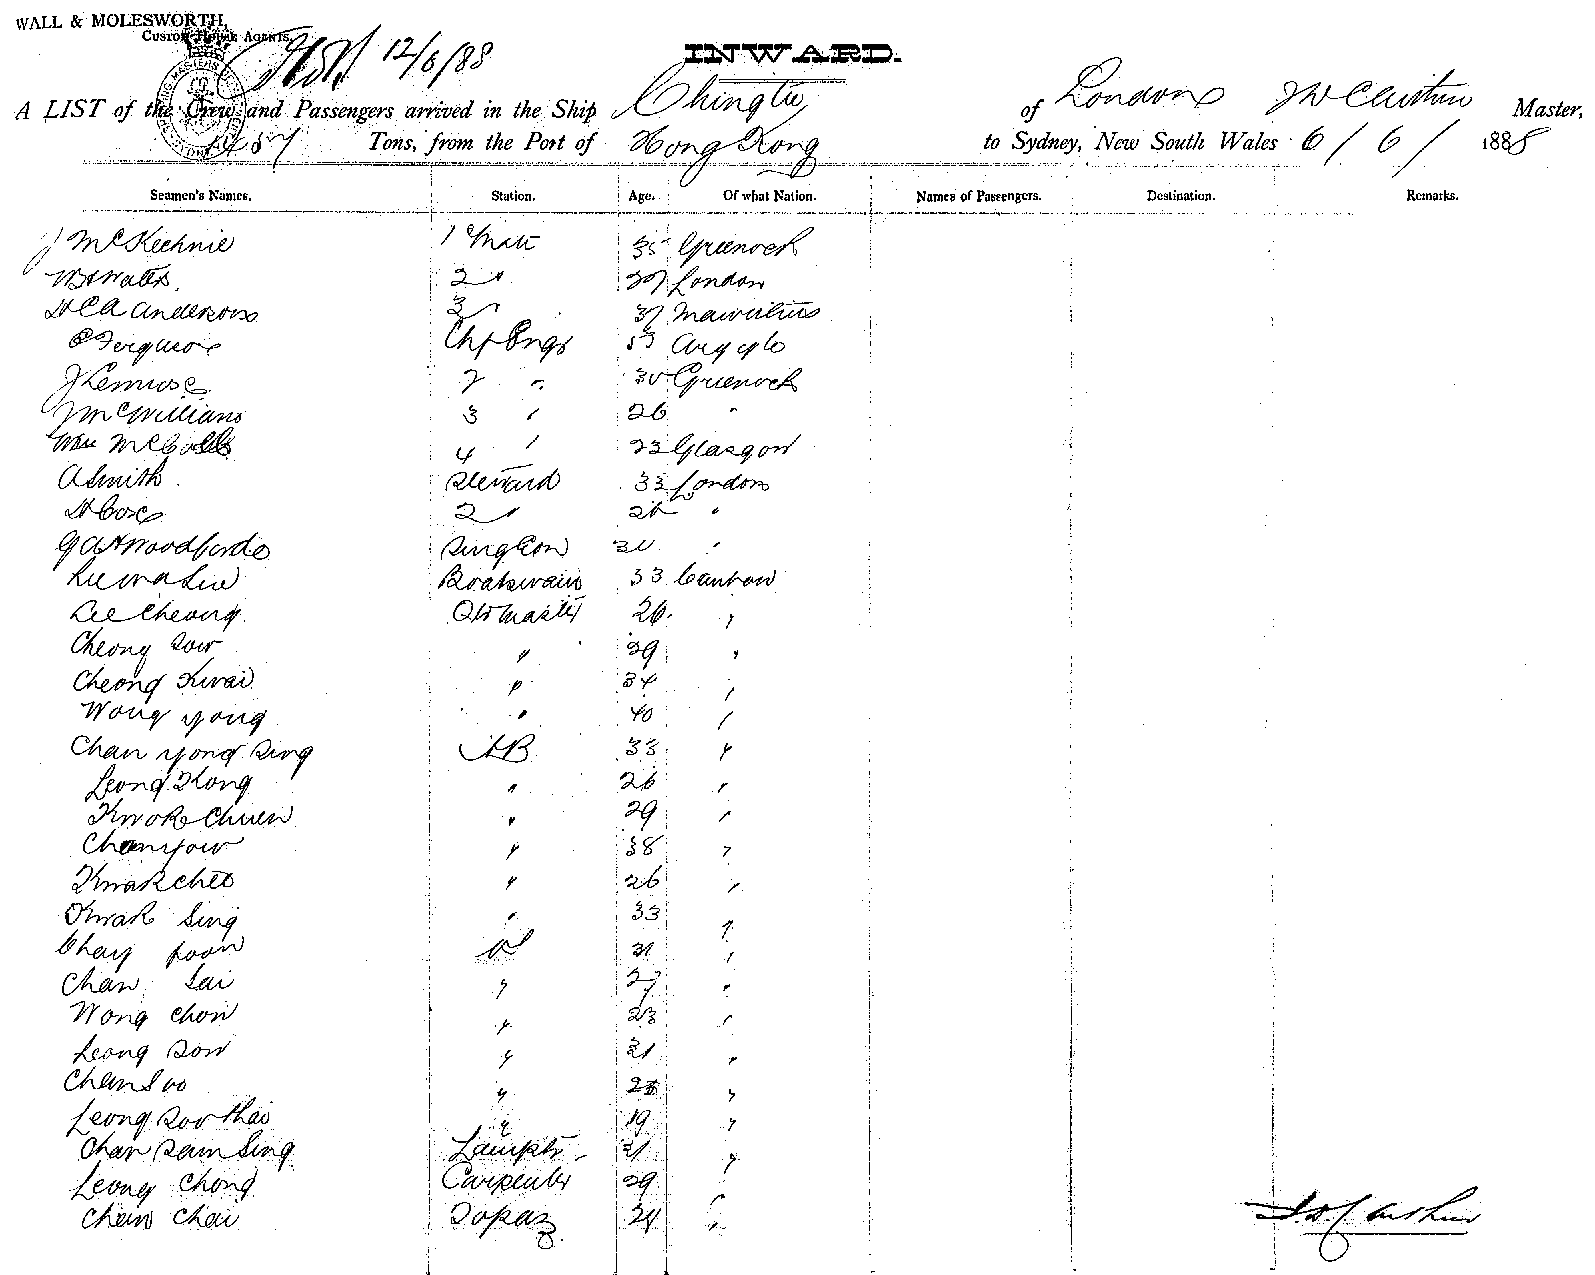 WALL & MOLESWORTH,
CUSTOM HOUSE AGENTS.
12/6/88
INWARD.
A LIST of the Crew and Passengers arrived in the Ship Chingtu, of London Master,
1457 Tons, from the Port of Hong Kong to Sydney, New South Wales 6/6/1888
Seamen's Names. Station. Age. Of what Nation. Names of Passengers. Destination. Remarks.
J McKechnie 1st Mate 35 Greenock
2 " London
3 " 37 Mauritius
Ferguson Chf Engr 53 Argyle
2 " 30 Greenock
J McWilliams 3 " 26 "
Wm 4 " 23 Glasgow
A Smith Steward 33 London
H Cox 2 " "
G A Woodforde Surgeon "
Boatswain 33 Canton
Lee Cheong Qtr master 26 "
Cheong Sow " 29 "
Cheong Kwai " 34 "
Wong Yong " 40 "
Chan Yong Sing AB 33 "
Leong Kong " 26 "
Kwok Chuen " 29 "
Chan Yow " 38 "
Kwak Chee " 26 "
Kwak Sing " 33 "
poon 31 "
Chan Sai " 27 "
Wong Chon " 23 "
Leong Sow " 21 "
Chan Soo " "
Leong Sow Thai " 19 "
Chan Sam Sing Lamptr 21 "
Leong Chong Carpenter 29 "
Chan Chai Topaz "